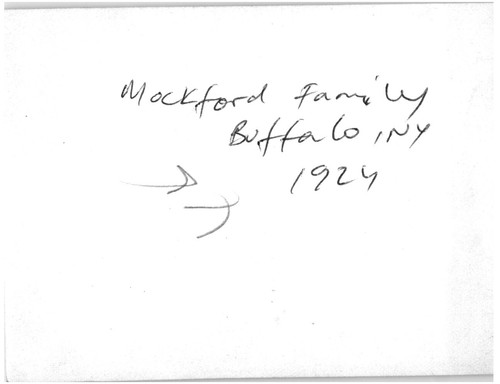 Mockford Family
Buffalo, NY
1924